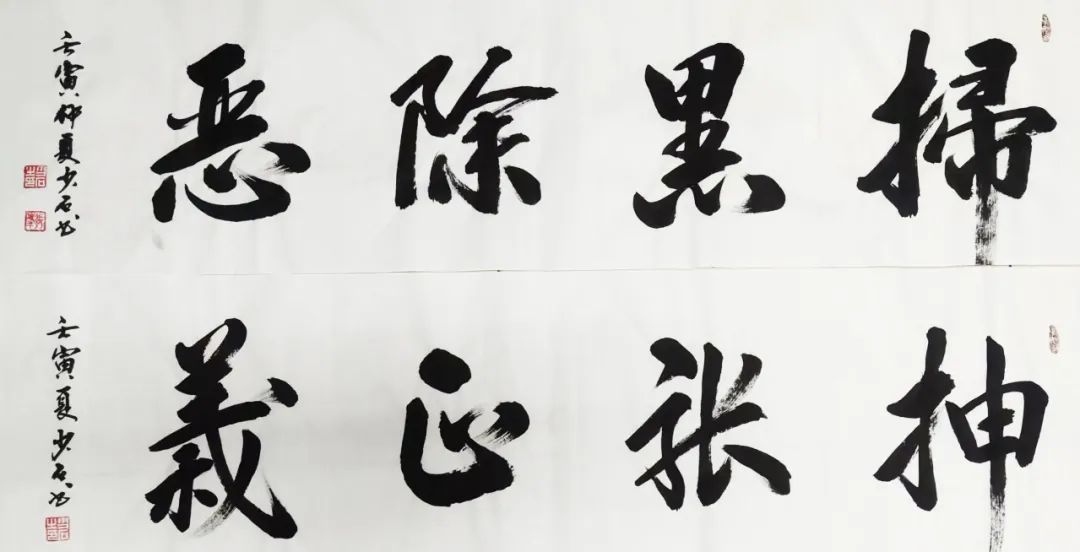 掃黑除恶
壬寅仲夏少石书
抻张正義
壬寅夏少石书